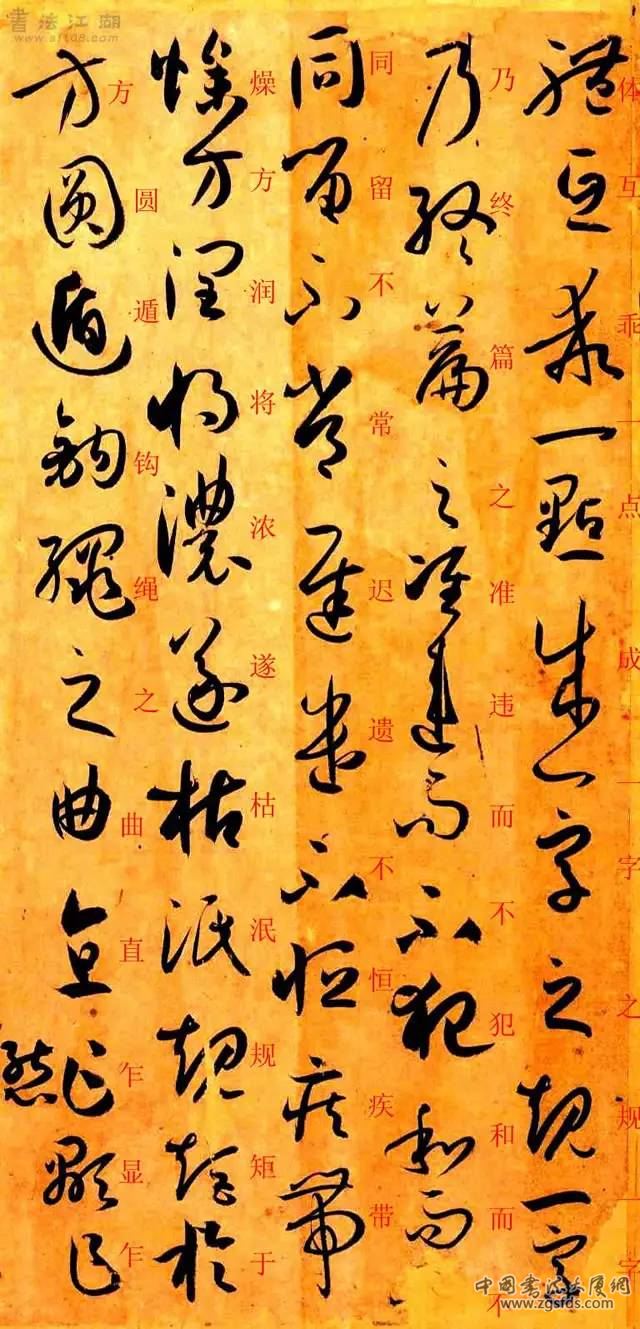 書法江湖
www.sf108.com
體互乖一點成一字之規一字
体互乖一点成一字之规一字
乃終篇之准違而不犯和而
乃终篇之准违而不犯和而不
同留不常遲遣不恒疾帶
同留不常迟遗不恒疾带
燥方潤將濃遂枯泯規矩於
燥方润将浓遂枯泯规矩于
方圓遁鉤繩之曲直乍顯乍
方圆遁钩绳之曲直乍显乍
中国書法大厦網
www.zgsfds.com